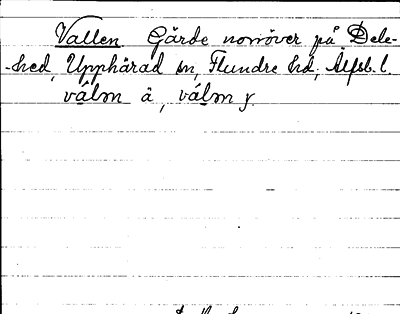 Vallen Gärde norröver på Dele-
-hed, Upphärad sn, Flundre hd, Älfsb. l.
válm å, válm y